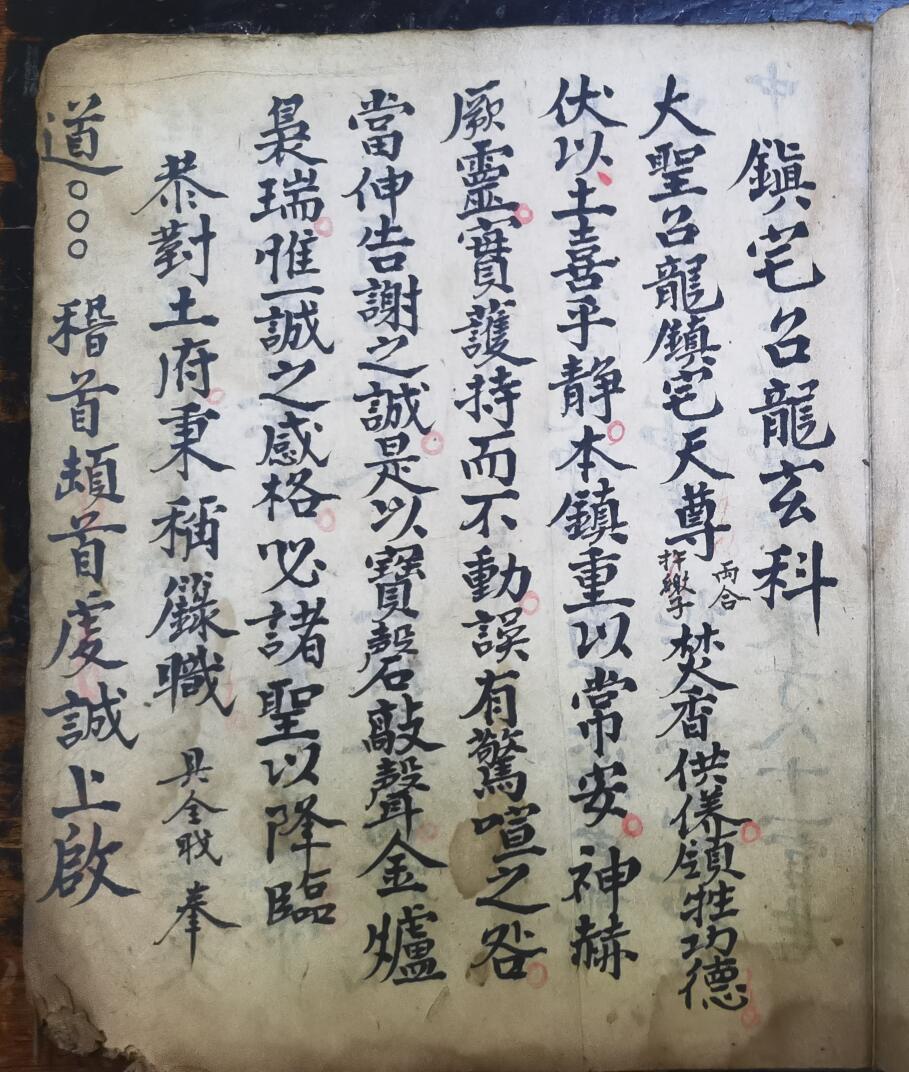 鎮宅召龍玄科
大聖召龍鎮宅天尊 両合 焚香供養領牲功德
伏以土喜乎静本鎮重以常安神赫
厥靈寶護持而不動誤有驚喧之咎
當伸告謝之誠是以寶磬敲聲金爐
裊瑞惟一誠之感格必諸聖以降臨
恭對土府秉稱籙職 具全职 奉
道○○○ 稽首頓首虔誠上啟